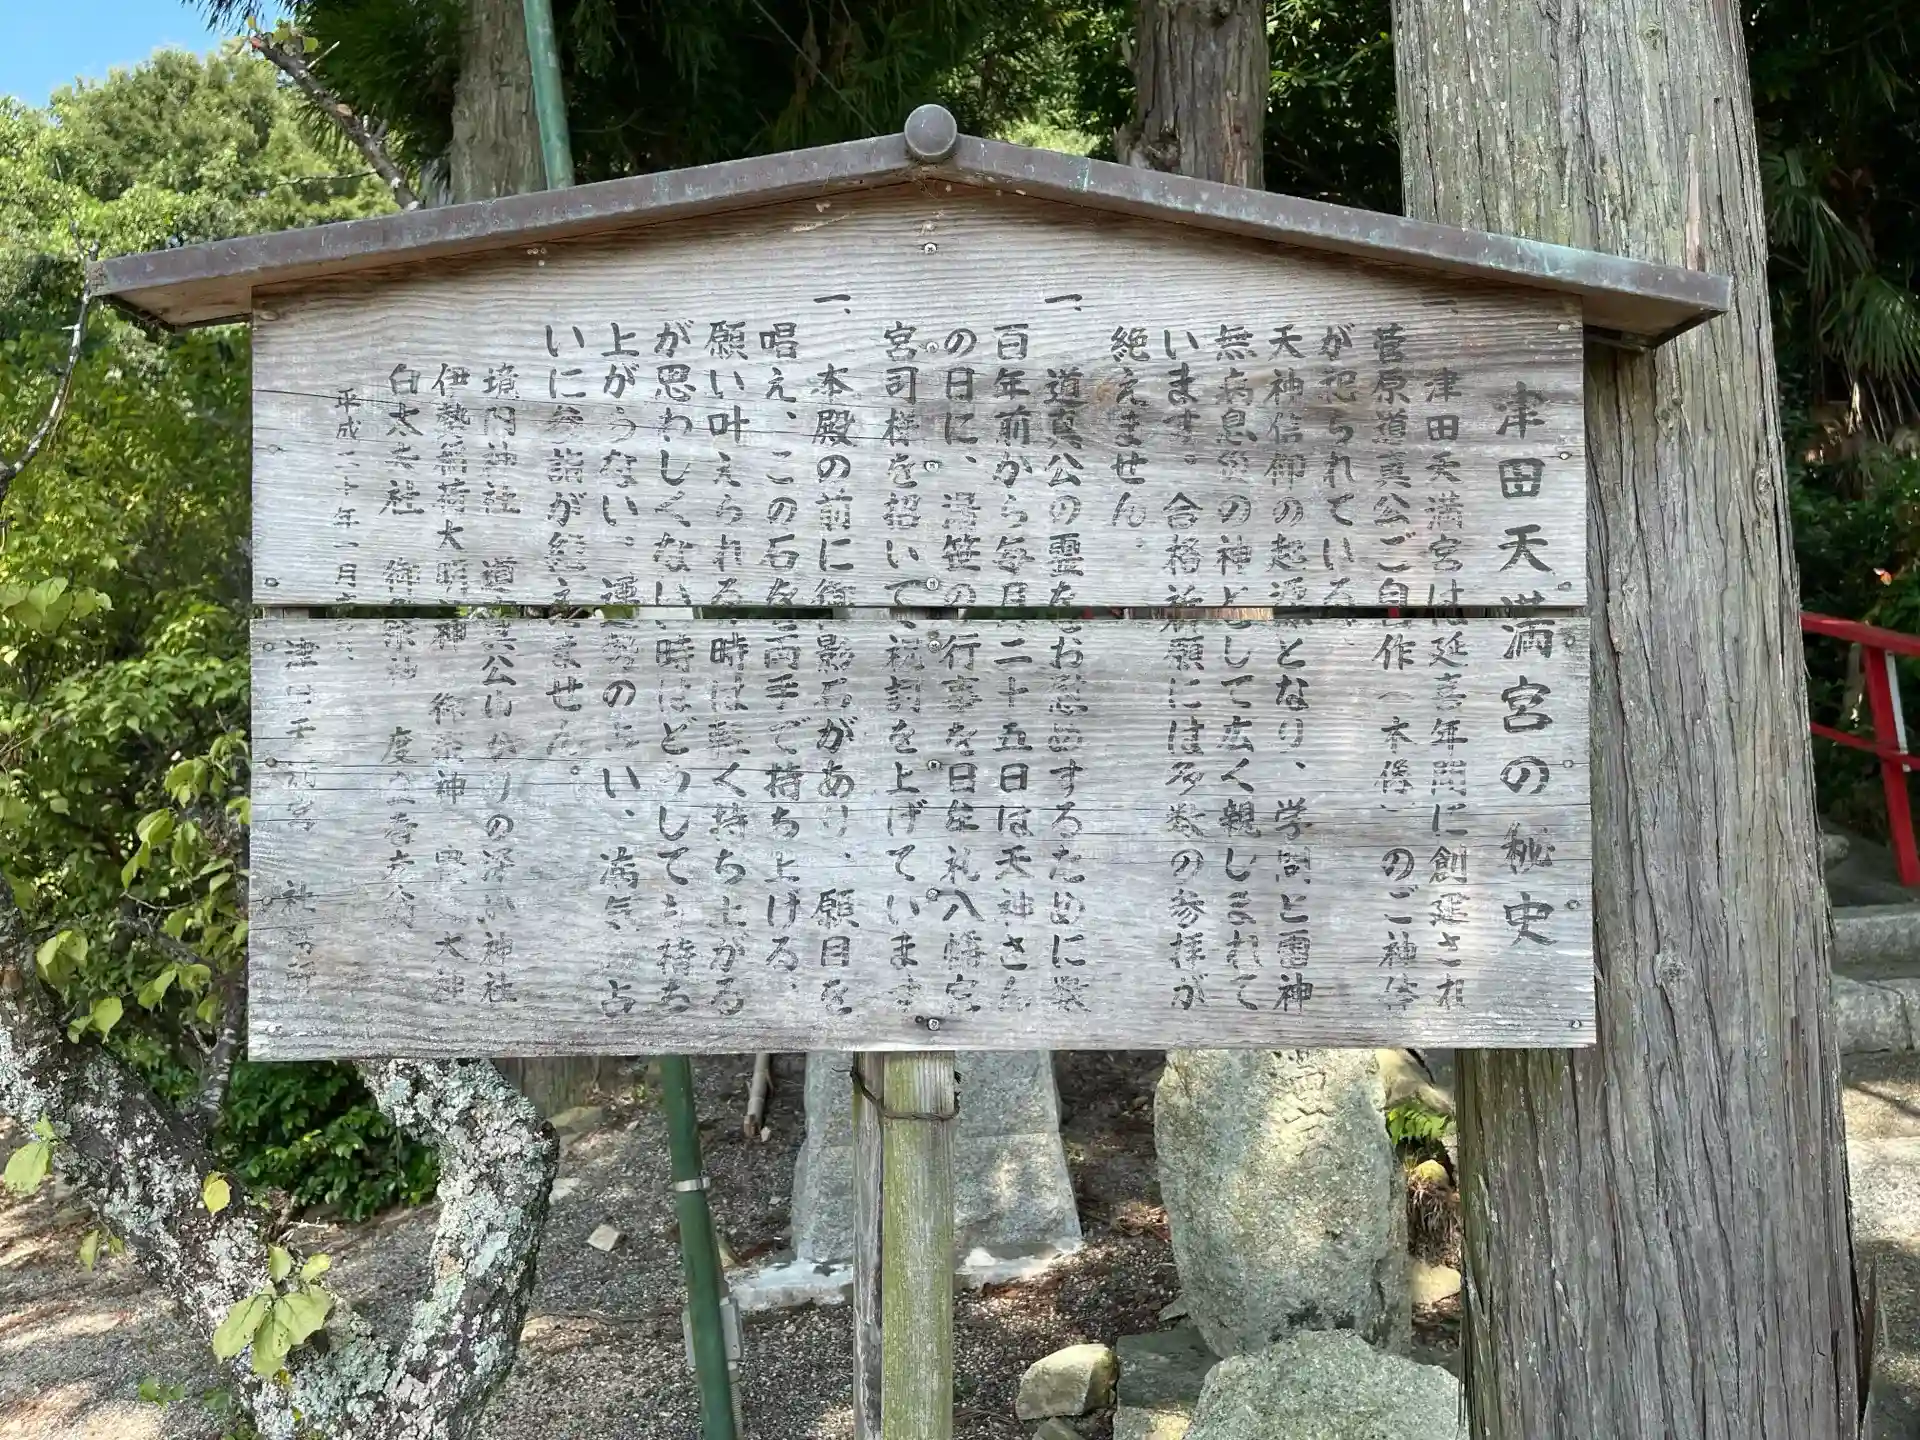 津田天満宮の秘史
一、津田天満宮は延喜年間に創延され
菅原道真公ご自作(木像)のご神体
が祀られている。
天神信仰の起源となり、学問と雷神
無病息災の神として広く親しまれて
います。合格祈願には多数の参拝が
絶えません。
一、道真公の霊をお慰めするために数
百年前から毎月二十五日は天神さん
の日に、湯笹の行事を日牟礼八幡宮
宮司様を招いて祝詞を上げています
一、本殿の前に御影石があり、願目を
唱え、この石を両手で持ち上げる、
願い叶えられる時は軽く持ち上がる
が思わしくない時はどうしても持ち
上がらない。運勢の占い、満気 占
いに参詣が絶えません。
境内神社 道真公ゆかりの深い神社
伊勢箱荷大明神 御祭神 大神
白太夫社 御祭神 度会春彦翁
平成二十年一月
津田天満宮 社務所